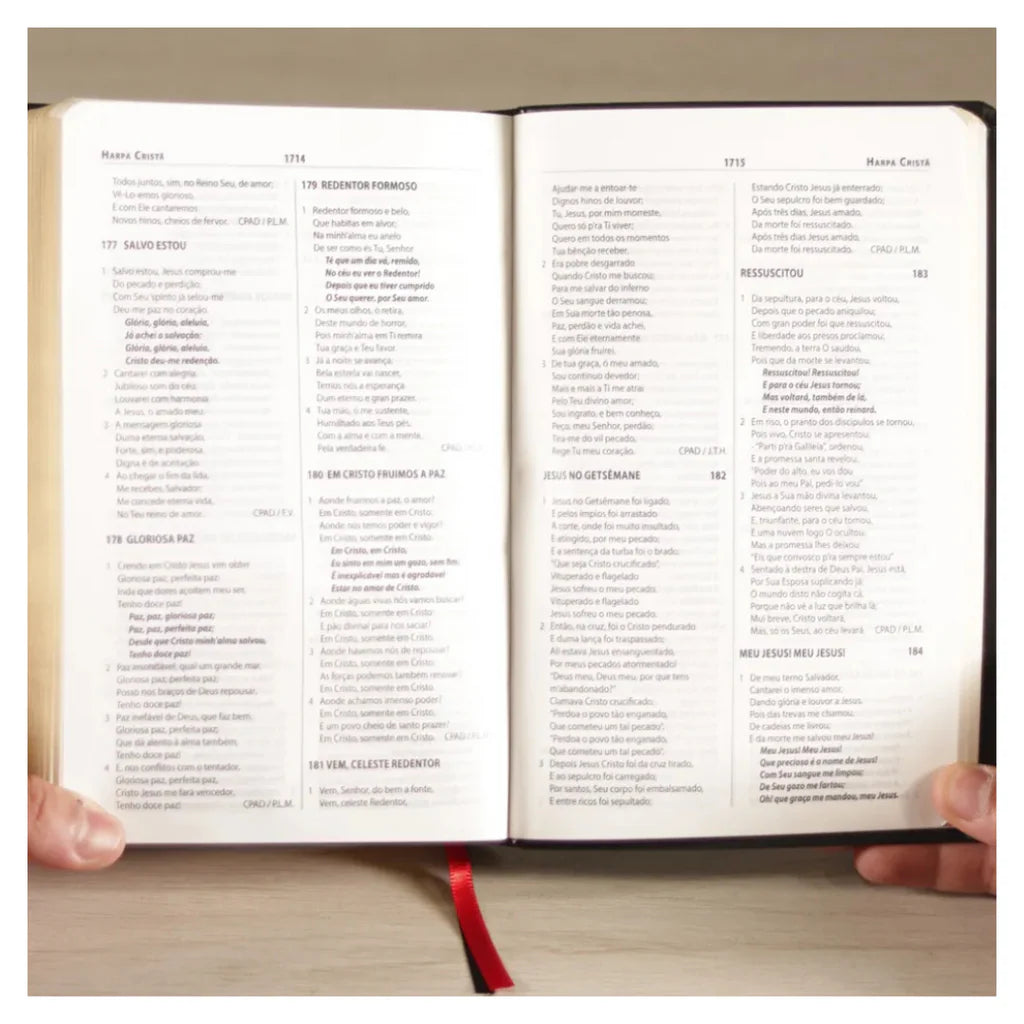 HARPA CRISTÃ
1714
Todos juntos, sim, no Reino Seu, de amor;
Vê-Lo-emos glorioso,
E com Ele cantaremos
Novos hinos, cheios de fervor. CPAD / P.L.M.
177 SALVO ESTOU
1 Salvo estou, Jesus comprou-me
Do pecado e perdição;
Com Seu spirito já selou-me
Deu-me paz no coração.
Glória, glória, aleluia,
Já achei a salvação;
Glória, glória, aleluia,
Cristo deu-me redenção.
2 Cantarei com alegria,
Jubiloso som do céu,
Louvarei com harmonia
A Jesus, o amado meu.
3 A mensagem gloriosa
Duma eterna salvação,
Forte, sim, e poderosa,
Digna é de aceitação.
4 Ao chegar o fim da lida,
Me recebes, Salvador;
Me concede eterna vida,
No Teu reino de amor. CPAD / F.V.
178 GLORIOSA PAZ
1 Crendo em Cristo Jesus vim obter
Gloriosa paz, perfeita paz;
Inda que dores açoitem meu ser,
Tenho doce paz!
Paz, paz, gloriosa paz;
Paz, paz, perfeita paz;
Desde que Cristo minh'alma salvou,
Tenho doce paz!
2 Paz insondável, qual um grande mar,
Gloriosa paz, perfeita paz;
Posso nos braços de Deus repousar,
Tenho doce paz!
3 Paz inefável de Deus, que faz bem,
Gloriosa paz, perfeita paz;
Que dá alento à alma também,
Tenho doce paz!
4 E, nos conflitos com o tentador,
Gloriosa paz, perfeita paz,
Cristo Jesus me fará vencedor,
Tenho doce paz! CPAD / P.L.M.
179 REDENTOR FORMOSO
1 Redentor formoso e belo,
Que habitas em alvor;
Na minh'alma eu anelo
De ser como és Tu, Senhor
Té que um dia vá, remido,
No céu eu ver o Redentor!
Depois que eu tiver cumprido
O Seu querer, por Seu amor.
2 Os meus olhos, ó retira,
Deste mundo de horror,
Pois minh'alma em Ti remira
Tua graça e Teu favor.
3 Já a noite se avança;
Bela estrela vai nascer,
Temos nós a esperança
Dum eterno e gran prazer.
4 Tua mão, ó me sustente,
Humilhado aos Teus pés,
Com a alma e com a mente,
Pela verdadeira fé. CPAD /
180 EM CRISTO FRUIMOS A PAZ
1 Aonde fruirmos a paz, o amor?
Em Cristo, somente em Cristo;
Aonde nós temos poder e vigor?
Em Cristo, somente em Cristo.
Em Cristo, em Cristo,
Eu sinto em mim um gozo, sem fim.
É inexplicável mas é agradável
Estar no amor de Cristo.
2 Aonde águas vivas nós vamos buscar?
Em Cristo, somente em Cristo;
E pão divinal para nos saciar?
Em Cristo, somente em Cristo.
3 Aonde havemos nós de repousar?
Em Cristo, somente em Cristo,
As forças podemos também renovar?
Em Cristo, somente em Cristo.
4 Aonde achamos imenso poder?
Em Cristo, somente em Cristo,
E um povo cheio de santo prazer?
Em Cristo, somente em Cristo. CPAD /
181 VEM, CELESTE REDENTOR
1 Vem, Senhor, do bem a fonte,
Vem, celeste Redentor,
1715
HARPA CRISTÃ
Ajudar-me a entoar-te
Dignos hinos de louvor;
Tu, Jesus, por mim morreste,
Quero só p'ra Ti viver;
Quero em todos os momentos
Tua bênção receber.
2 Era pobre desgarrado
Quando Cristo me buscou;
Para me salvar do inferno
O Seu sangue derramou;
Em Sua morte tão penosa,
Paz, perdão e vida achei,
E com Ele eternamente
Sua glória fruirei.
3 De tua graça, ó meu amado,
Sou contínuo devedor;
Mais e mais a Ti me atrai
Pelo Teu divino amor;
Sou ingrato, e bem conheço,
Peço, meu Senhor, perdão;
Tira-me do vil pecado,
Rege Tu meu coração. CPAD / J.T.H.
JESUS NO GETSÊMANE 182
1 Jesus no Getsêmane foi ligado,
E pelos ímpios foi arrastado
A corte, onde foi muito insultado,
E atingido, por meu pecado;
E a sentença da turba foi o brado;
"Que seja Cristo crucificado".
Vituperado e flagelado
Jesus sofreu o meu pecado.
Vituperado e flagelado
Jesus sofreu o meu pecado.
2 Então, na cruz, foi o Cristo pendurado
E duma lança foi traspassado;
Ali estava Jesus ensanguentado,
Por meus pecados atormentado!
"Deus meu, Deus meu, por que tens
m'abandonado?"
Clamava Cristo crucificado;
"Perdoa o povo tão enganado,
Que cometeu um tal pecado".
"Perdoa o povo tão enganado,
Que cometeu um tal pecado".
3 Depois Jesus Cristo foi da cruz tirado,
E ao sepulcro foi carregado;
Por santos, Seu corpo foi embalsamado,
E entre ricos foi sepultado;
Estando Cristo Jesus já enterrado;
O Seu sepulcro foi bem guardado;
Após três dias, Jesus amado,
Da morte foi ressuscitado.
Após três dias Jesus amado,
Da morte foi ressuscitado. CPAD / P.L.M.
RESSUSCITOU 183
1 Da sepultura, para o céu, Jesus voltou,
Depois que o pecado aniquilou;
Com gran poder foi que ressuscitou,
E liberdade aos presos proclamou;
Tremendo, a terra O saudou,
Pois que da morte se levantou.
Ressuscitou! Ressuscitou!
E para o céu Jesus tornou;
Mas voltará, também de lá,
E neste mundo, então reinará.
2 Em riso, o pranto dos discípulos se tornou,
Pois vivo, Cristo se apresentou,
"Parti p'ra Galileia", ordenou,
E a promessa santa revelou.
"Poder do alto, eu vos dou
Pois ao meu Pai, pedi-lo vou"
3 Jesus a Sua mão divina levantou,
Abençoando seres que salvou,
E, triunfante, para o céu tornou,
E uma nuvem logo O ocultou.
Mas a promessa lhes deixou:
"Eis que convosco p'ra sempre estou"
4 Sentado à destra de Deus Pai, Jesus está,
Por Sua Esposa suplicando já;
O mundo disto não cogita cá,
Porque não vê a luz que brilha lá;
Mui breve, Cristo voltará,
Mas, só os Seus, ao céu levará. CPAD / P.L.M.
MEU JESUS! MEU JESUS! 184
1 De meu terno Salvador,
Cantarei o imenso amor,
Dando glória e louvor a Jesus.
Pois das trevas me chamou,
De cadeias me livrou;
E da morte me salvou meu Jesus!
Meu Jesus! Meu Jesus!
Que precioso é o nome de Jesus!
Com Seu sangue me limpou;
De Seu gozo me fartou;
Oh! que graça me mandou, meu Jesus.